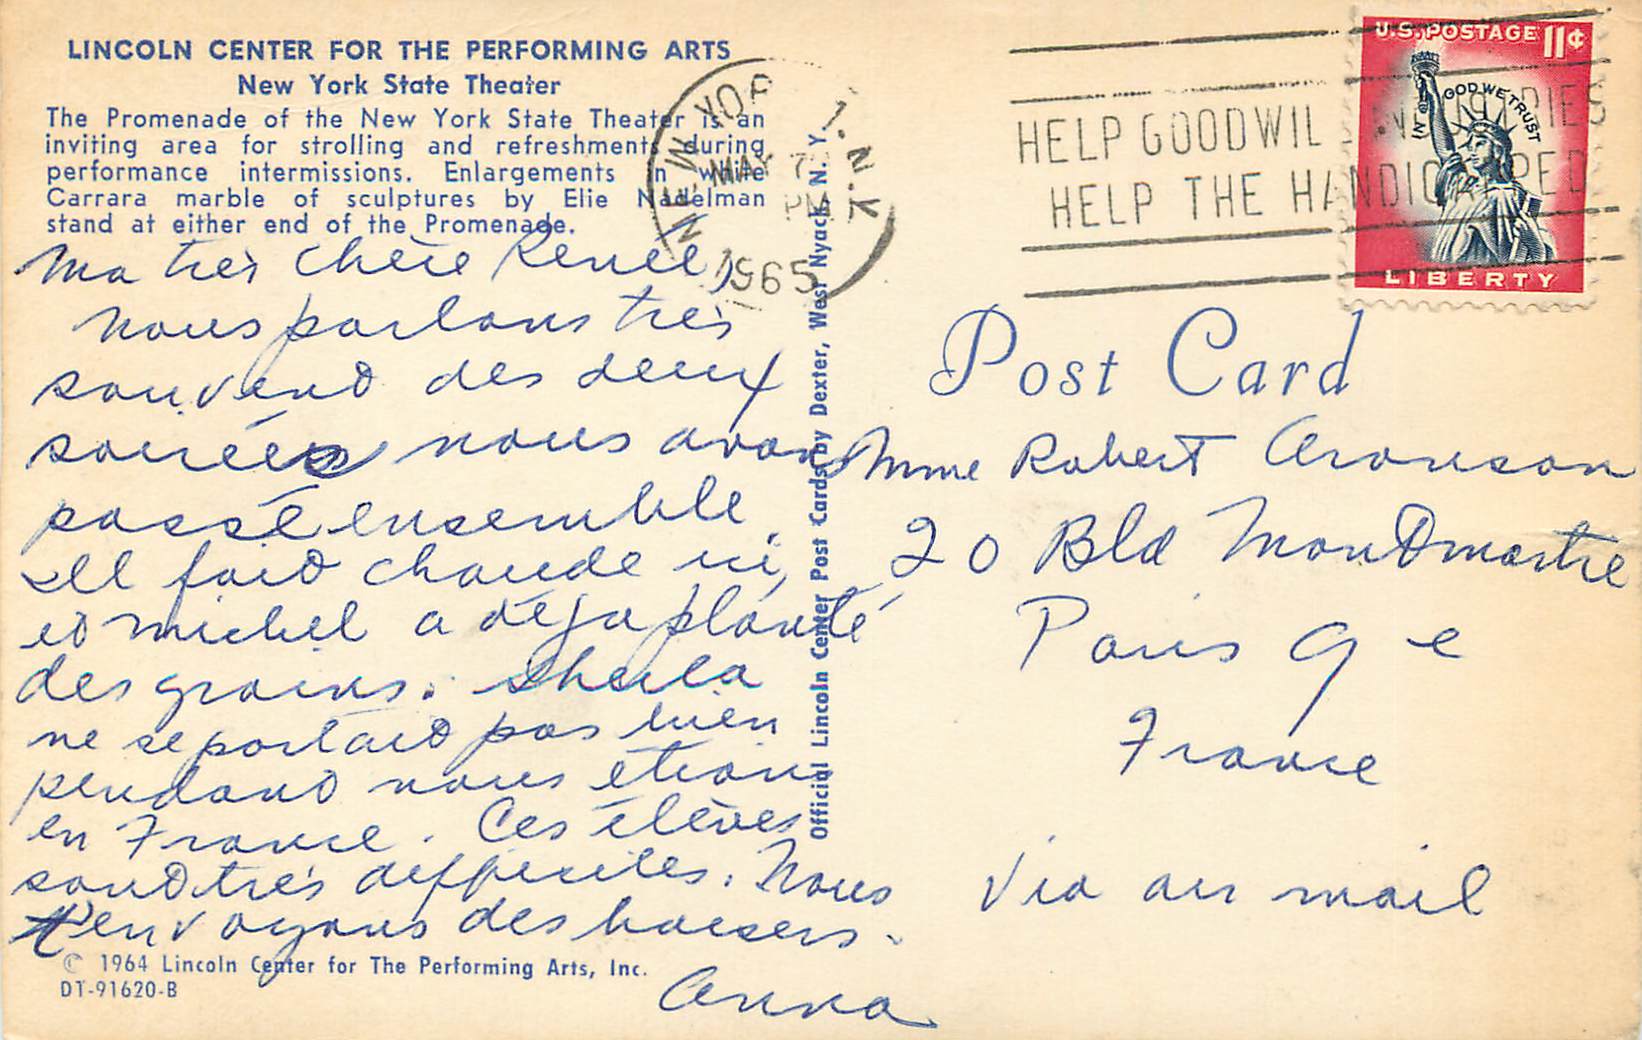 LINCOLN CENTER FOR THE PERFORMING ARTS
New York State Theater
The Promenade of the New York State Theater is an
inviting area for strolling and refreshments during
performance intermissions. Enlargements in white
Carrara marble of sculptures by Elie Nadelman
stand at either end of the Promenade.
Ma très chère Renée,
Nous parlons très
souvent des deux
soirées nous avons
passé ensemble.
Il fait chaude ici,
et Michel a déja planté
des grains. Sheila
ne se portait pas bien
pendant nous etions
en France. Ces élèves
sont très difficiles. Nous
t'envoyons des baisers.
Anna
© 1964 Lincoln Center for The Performing Arts, Inc.
DT-91620-B
Official Lincoln Center Post Cards by Dexter, West Nyack, N. Y.
NEW YOR N.Y.
MAY 7
PM
1965
HELP GOODWIL INDUSTRIES
HELP THE HANDICAPPED
U.S. POSTAGE 11¢
IN GOD WE TRUST
LIBERTY
Post Card
Mme Robert Aronson
20 Bld Montmartre
Paris 9 e
France
Via air mail